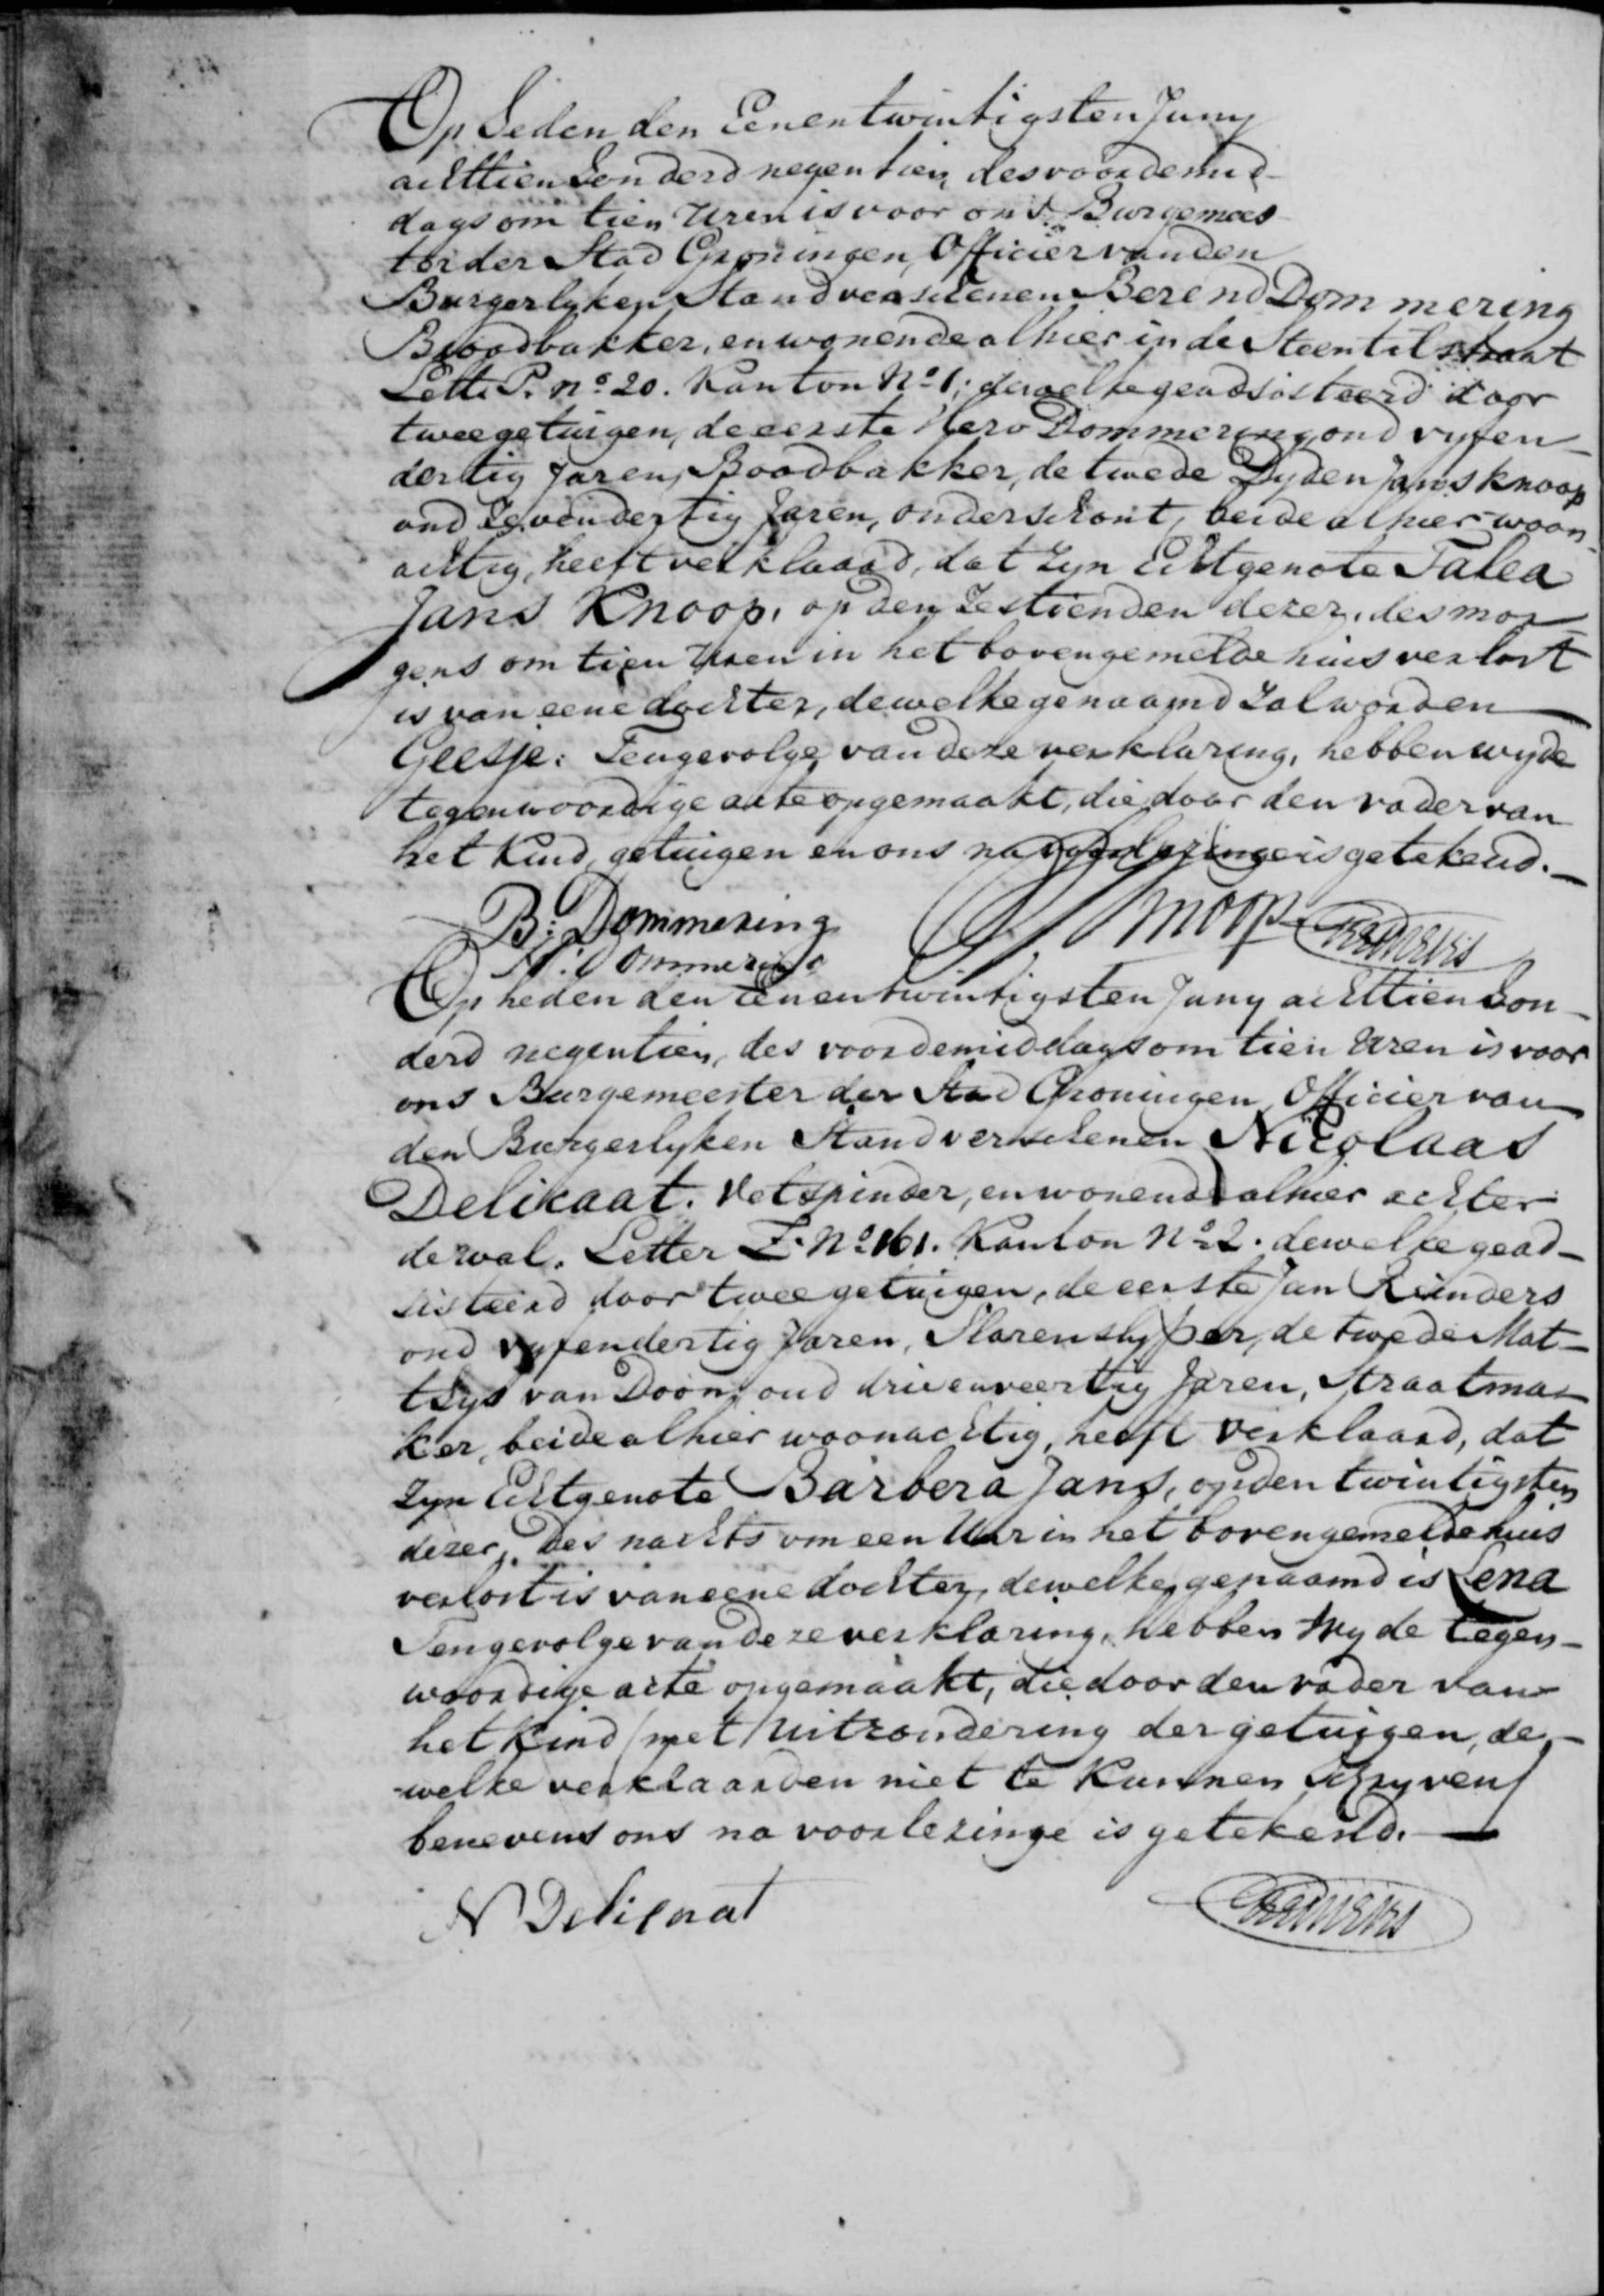 Op heden den Eenentwintigsten Juny
achttienhonderd negentien, des voordemid-
dags om tien Uren is voor ons Burgemees
ter der Stad Groningen, Officier van den
Burgerlyken Stand verschenen Berend Dommering
Broodbakker, en wonende alhier in de Steentilstraat
Lettr P. No 20. Kanton No 1; dewelke geadsisteerd door
twee getuigen, de eerste Hero Dommering, oud vyfen-
dertig Jaren, Boodbakker, de twede Jans Knoop
oud zevendertig Jaren, onderschout, beide alhier woon-
achtig, heeft verklaard, dat zyn Echtgenote Talea
Jans Knoop, op den zestienden dezer, des mor-
gens om tien Uren in het bovengemelde huis verlost
is van eene dochter, dewelke genaamd zal worden
Geesje: Tengevolge van deze verklaring, hebben wy de
tegenwoordige acte opgemaakt, die door den vader van
het Kind, getuigen en ons na voorlezinge is getekend.-
B: Dommering Knoop
H: Dommering
Op heden den Eenentwintigsten Juny achttienhon-
derd negentien, des voordemiddags om tien Uren is voor
ons Burgemeester der Stad Groningen, Officier van
den Burgerlyken Stand verschenen Nicolaas
Delikaat. Vetspinder, en wonende alhier achter
de wal. Letter Z. No 161. Kanton No 2. dewelke gead-
sisteerd door twee getuigen, de eerste Jan Reinders
oud vyfendertig Jaren, Scharenslyper, de twede Mat-
thys van Doorn, oud drieenveertig Jaren, Straatma-
ker, beide alhier woonachtig, heeft verklaard, dat
zyn Echtgenote Barbera Jans, op den twintigsten
dezer, des nachts om een Uur in het bovengemelde huis
verlost is van eene dochter, dewelke genaamd is Lena
Tengevolge van deze verklaring, hebben Wy de tegen-
woordige acte opgemaakt, die door den vader van
het Kind (met Uitzondering der getuigen, de-
welke verklaarden niet te Kunnen schryven)
benevens ons na voorlezinge is getekend.-
N Delicaat